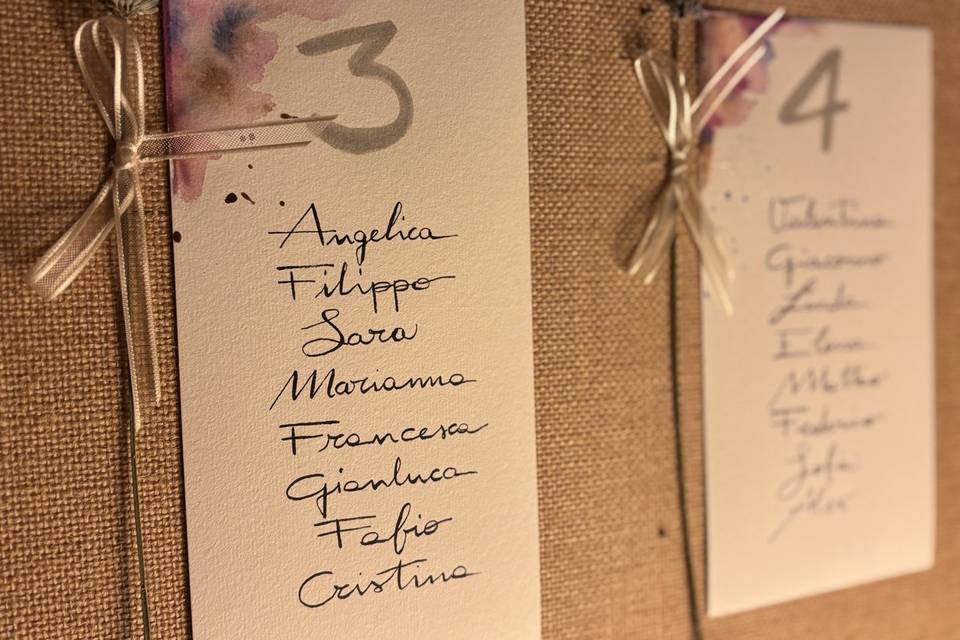 3
Angelica
Filippo
Sara
Marianna
Francesca
Gianluca
Fabio
Cristina
4
Valentina
Giacomo
Linda
Elena
Federico
Sofia